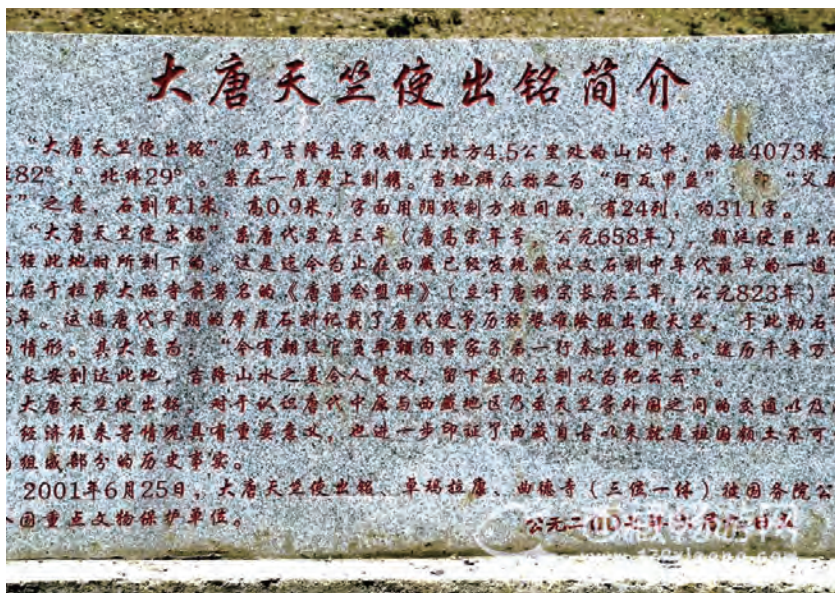 大唐天竺使出铭简介
“大唐天竺使出铭”位于吉隆县宗嘎镇正北方4.5公里处的山沟中,海拔4073米
82°,北纬29°。系在一崖壁上刻镌。当地群众称之为“阿瓦甲益”,即“父
”之意,石刻宽1米,高0.9米,字面用阴线刻方框间隔,有24列,约311字。
“大唐天竺使出铭”系唐代显庆三年(唐高宗年号,公元658年),朝廷使臣出
经此地时所刻下的。这是迄今为止在西藏已经发现藏汉文石刻中年代最早的一通
存于拉萨大昭寺前著名的《唐蕃会盟碑》(立于唐穆宗长庆三年,公元823年)
年。这通唐代早期的摩崖石刻记载了唐代使节历经艰难险阻出使天竺,于此勒石
情形。其大意为:“今有朝廷官员率领
一行奉出使印度。途历千辛万
长安到达此地,吉隆山水之美令人赞叹,留下数行石刻以为纪云云”。
大唐天竺使出铭,对于认识唐代中原与西藏地区乃至天竺等外国之间的交通以及
经济往来等情况具有重要意义,也进一步印证了西藏自古以来就是祖国领土不可
组成部分的历史事实。
2001年6月25日,大唐天竺使出铭、卓玛拉康、曲德寺(三位一体)被国务院公
国重点文物保护单位。
公元二